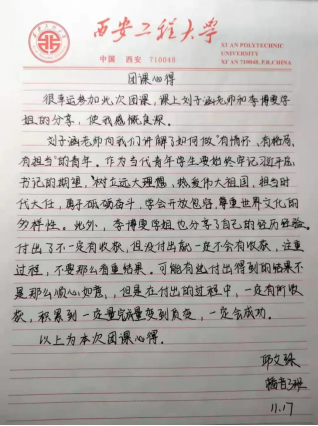 西安工程大学
XI AN POLYTECHNIC
UNIVERSITY
中国 西安 710048
XI AN 710048, P.R.CHINA
团课心得
很幸运参加此次团课,课上刘子涵老师和李博雯学
姐的分享,使我感慨良深。
刘子涵老师向我们讲解了如何做“有情怀、有格局、
有担当”的青年。作为当代青年学生要始终牢记习近平总
书记的期望,“树立远大理想,热爱伟大祖国,担当时
代大任,勇于砥砺奋斗,学会开放包容,尊重世界文化的
多样性。此外,李博雯学姐也分享了自己的经历经验。
付出了不一定有收获,但没付出就一定不会有收获,注重
过程,不要那么看重结果。可能有些付出得到的结果不
是那么顺心如意,但是在付出的过程中,一定有所收
获,积累到一定量完成量变到质变,一定会成功。
以上为本次团课心得。
11.17